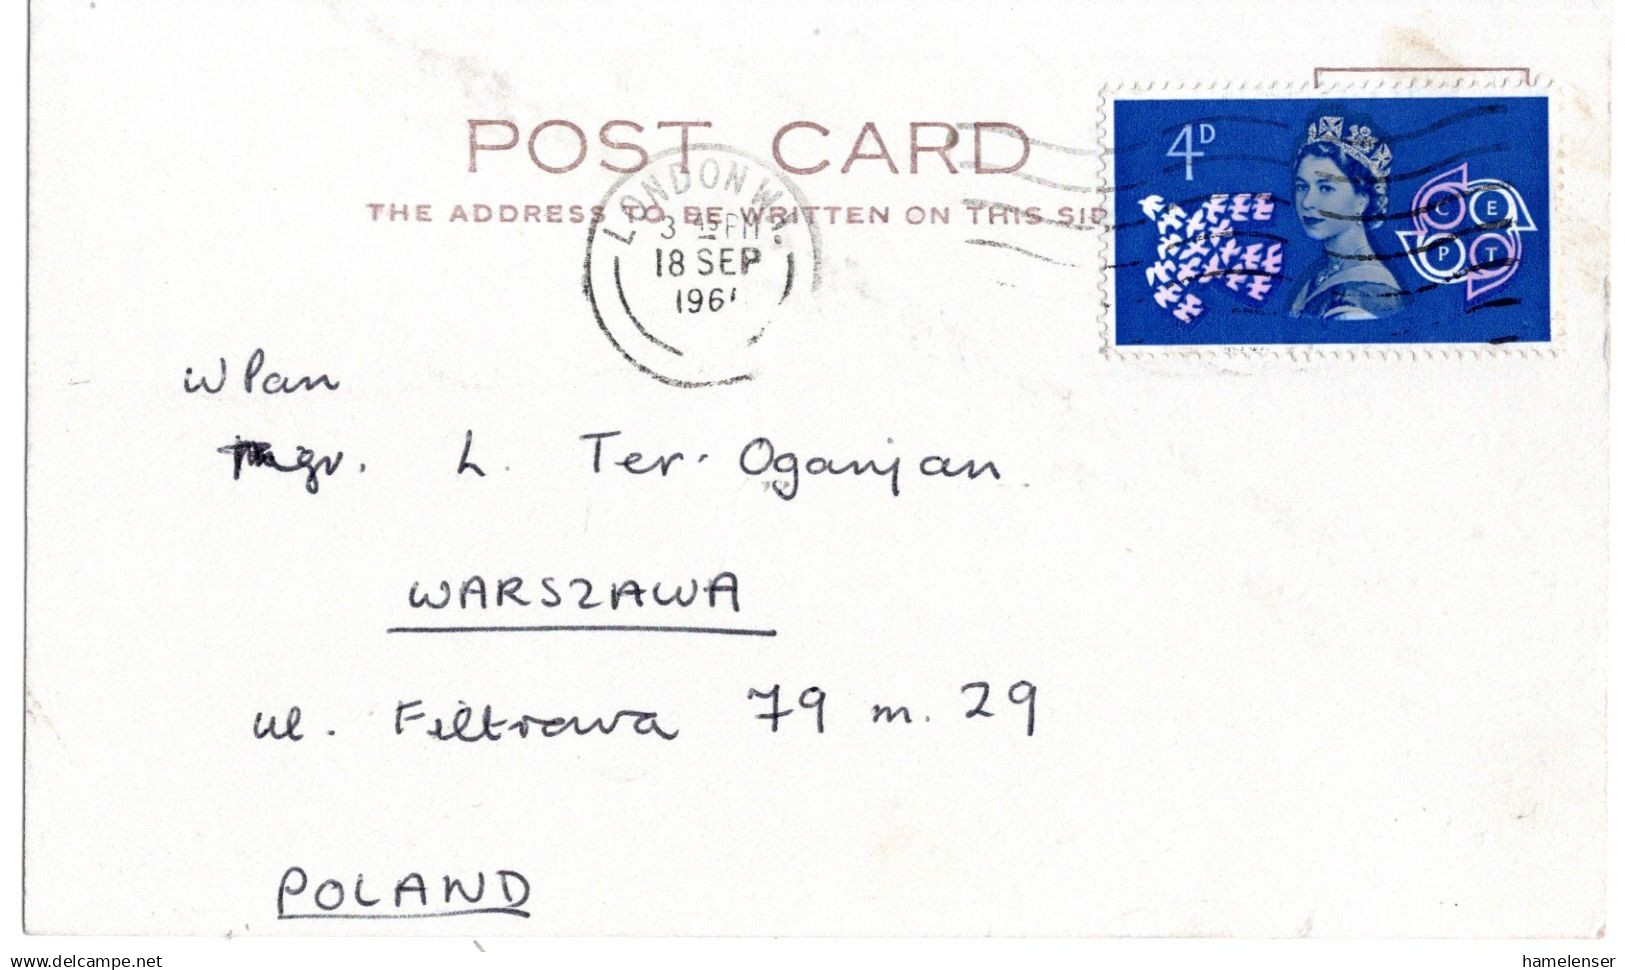 POST CARD
THE ADDRESS TO BE WRITTEN ON THIS SID
LONDON W
3 45 PM
18 SEP
1961
4D
C E
P T
W Pan
mgr. L. Ter-Oganjan
WARSZAWA
ul. Filtrowa 79 m. 29
POLAND
www.delcampe.net
hamelenser